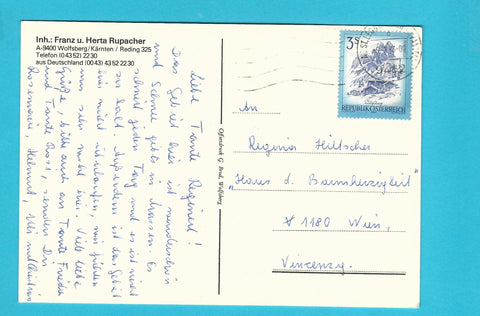 Inh.: Franz u. Herta Rupacher
A-9400 Wolfsberg/Kärnten / Reding 325
Telefon (0 43 52) 22 30
aus Deutschland (00 43) 43 52 22 30
Liebe Tante Regine!
Das Gebiet hier ist wunderschön
und Schnee gibt's in Massen. Es
schneit jeden Tag und es ist nicht
so kalt. Außerdem ist das Gebiet
hier nicht überlaufen, wir fühlen
uns sehr wohl hier. Viele liebe
Grüße, bitte auch an Tante Frieda
und Tante, senden Dir
Rosemarie, Helmut,
Offsetdruck G. Wolfsberg
3 S
REPUBLIK ÖSTERREICH
An
Regina Hiltscher
"Haus d. Barmherzigkeit"
A 1180 Wien,
Vinzenzg.